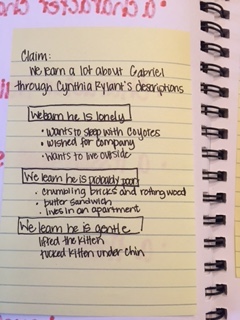 Claim:
We learn a lot about Gabriel
through Cynthia Rylant's descriptions
We learn he is lonely
• Wants to sleep with coyotes
• wished for company
• Wants to live outside
We learn he is probably poor
• crumbling bricks and rotting wood
• butter sandwich
• lives in an apartment
We learn he is gentle
lifted the kitten
tucked kitten under chin